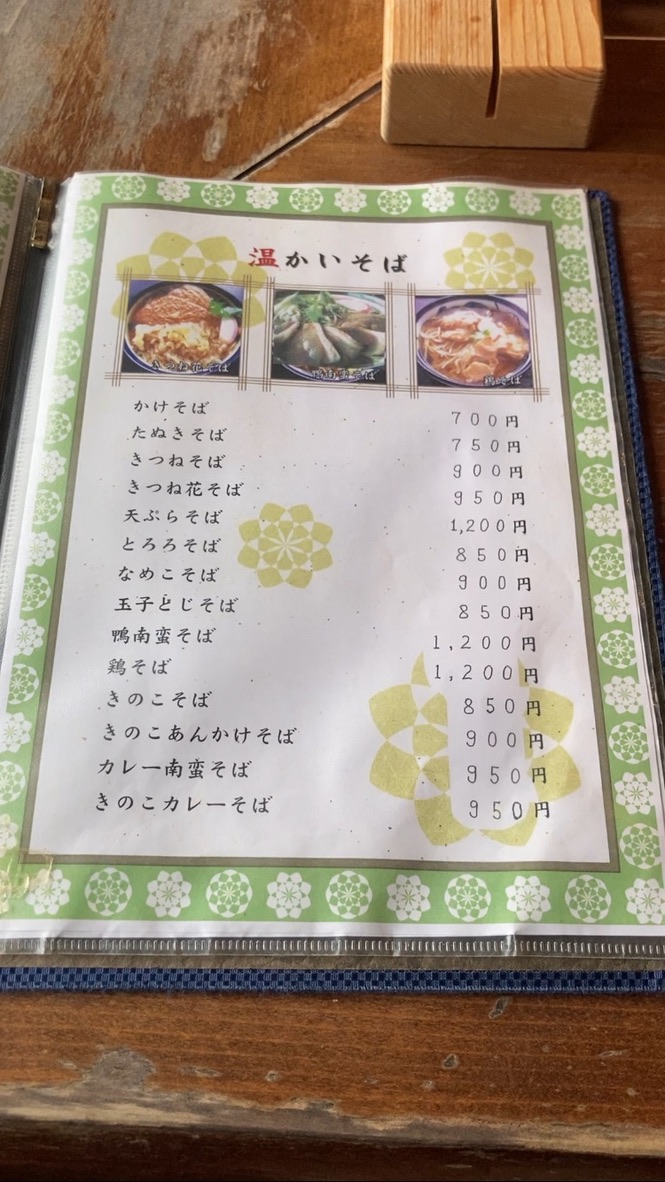 温かいそば
きつね花そば
鴨南蛮そば
鶏そば
かけそば 700円
たぬきそば 750円
きつねそば 900円
きつね花そば 950円
天ぷらそば 1,200円
とろろそば 850円
なめこそば 900円
玉子とじそば 850円
鴨南蛮そば 1,200円
鶏そば 1,200円
きのこそば 850円
きのこあんかけそば 900円
カレー南蛮そば 950円
きのこカレーそば 950円